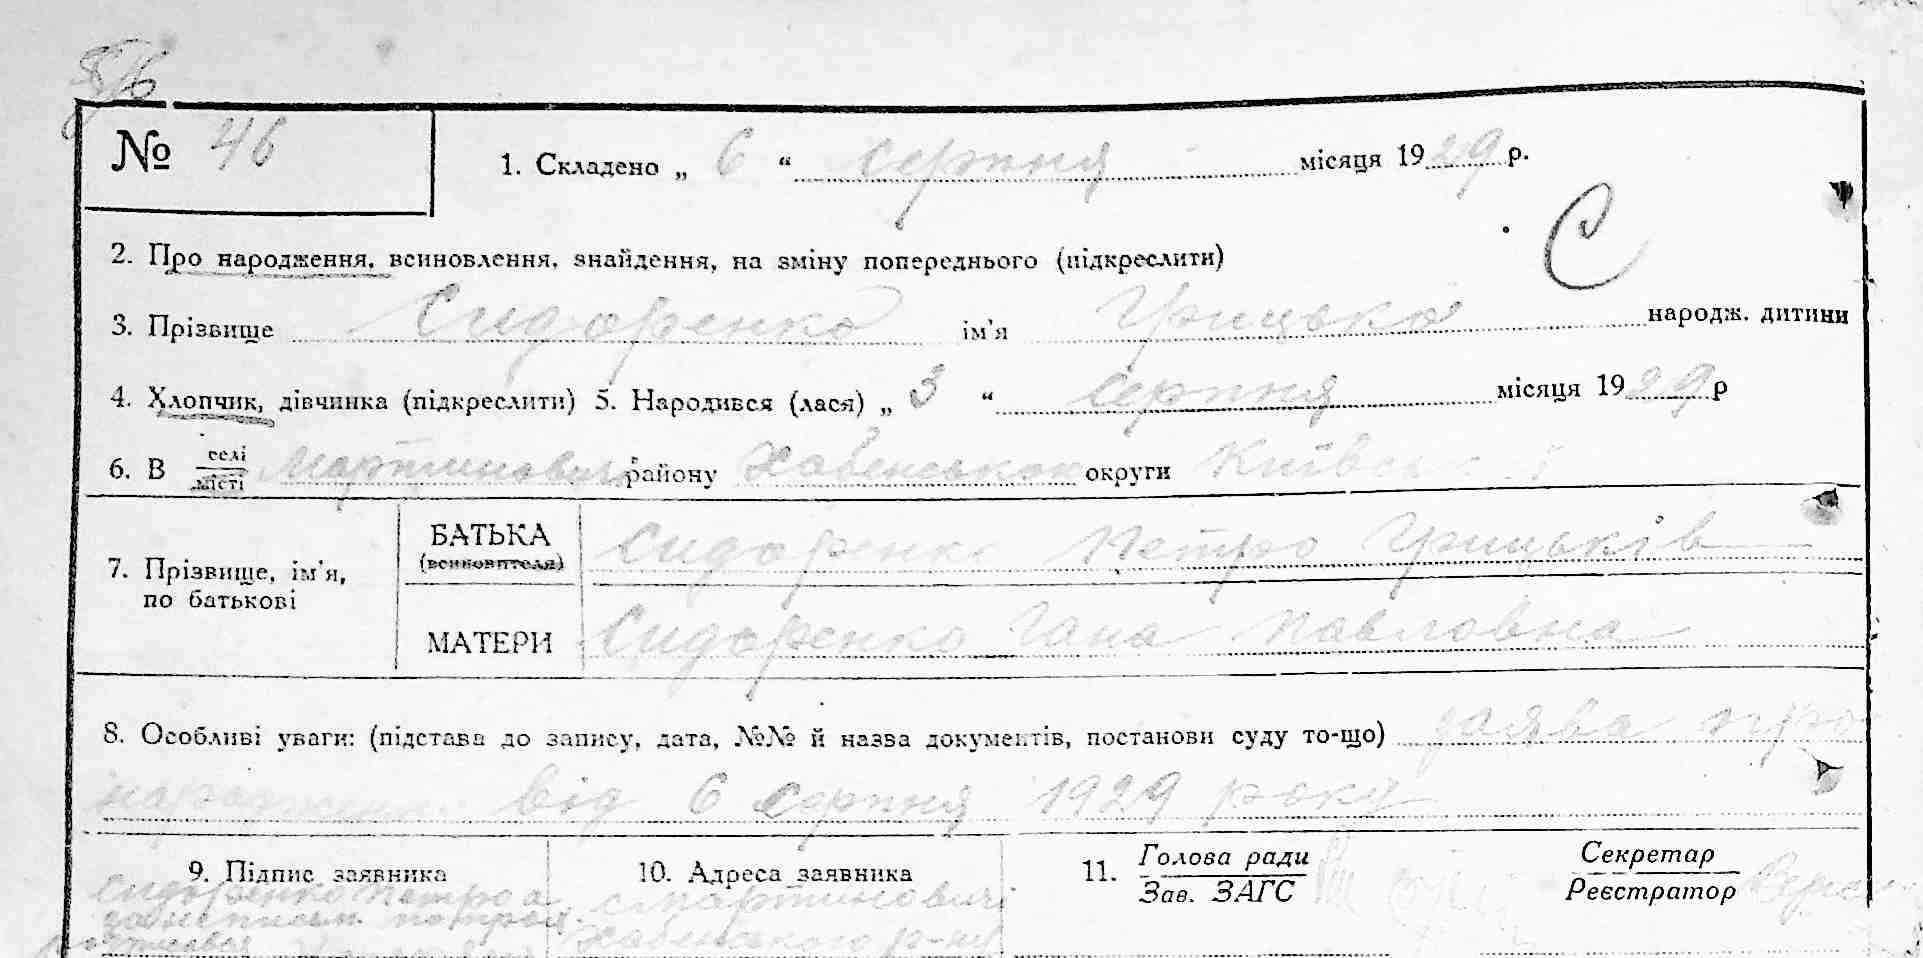 № 46
1. Складено „ 6 “ серпня місяця 1929 р.
С
2. Про народження, всиновлення, знайдення, на зміну попереднього (підкреслити)
3. Прізвище Сидоренко ім'я Грицько народж. дитини
4. Хлопчик, дівчинка (підкреслити) 5. Народився (лася) „ 3 “ серпня місяця 1929 р
6. В селі місті Мартиновичі району Хабенського округи Київськ
7. Прізвище, ім'я, по батькові
БАТЬКА (всиновителя) Сидоренко Петро Грицьків
МАТЕРИ Сидоренко Гана Павловна
8. Особливі уваги: (підстава до запису, дата, №№ й назва документів, постанови суду то-що) заява про
народження від 6 серпня 1929 року
9. Підпис заявника 10. Адреса заявника 11. Голова ради Зав. ЗАГС Секретар Реєстратор
Сидоренко Петро а с Мартиновичі
Хабенського р-ну